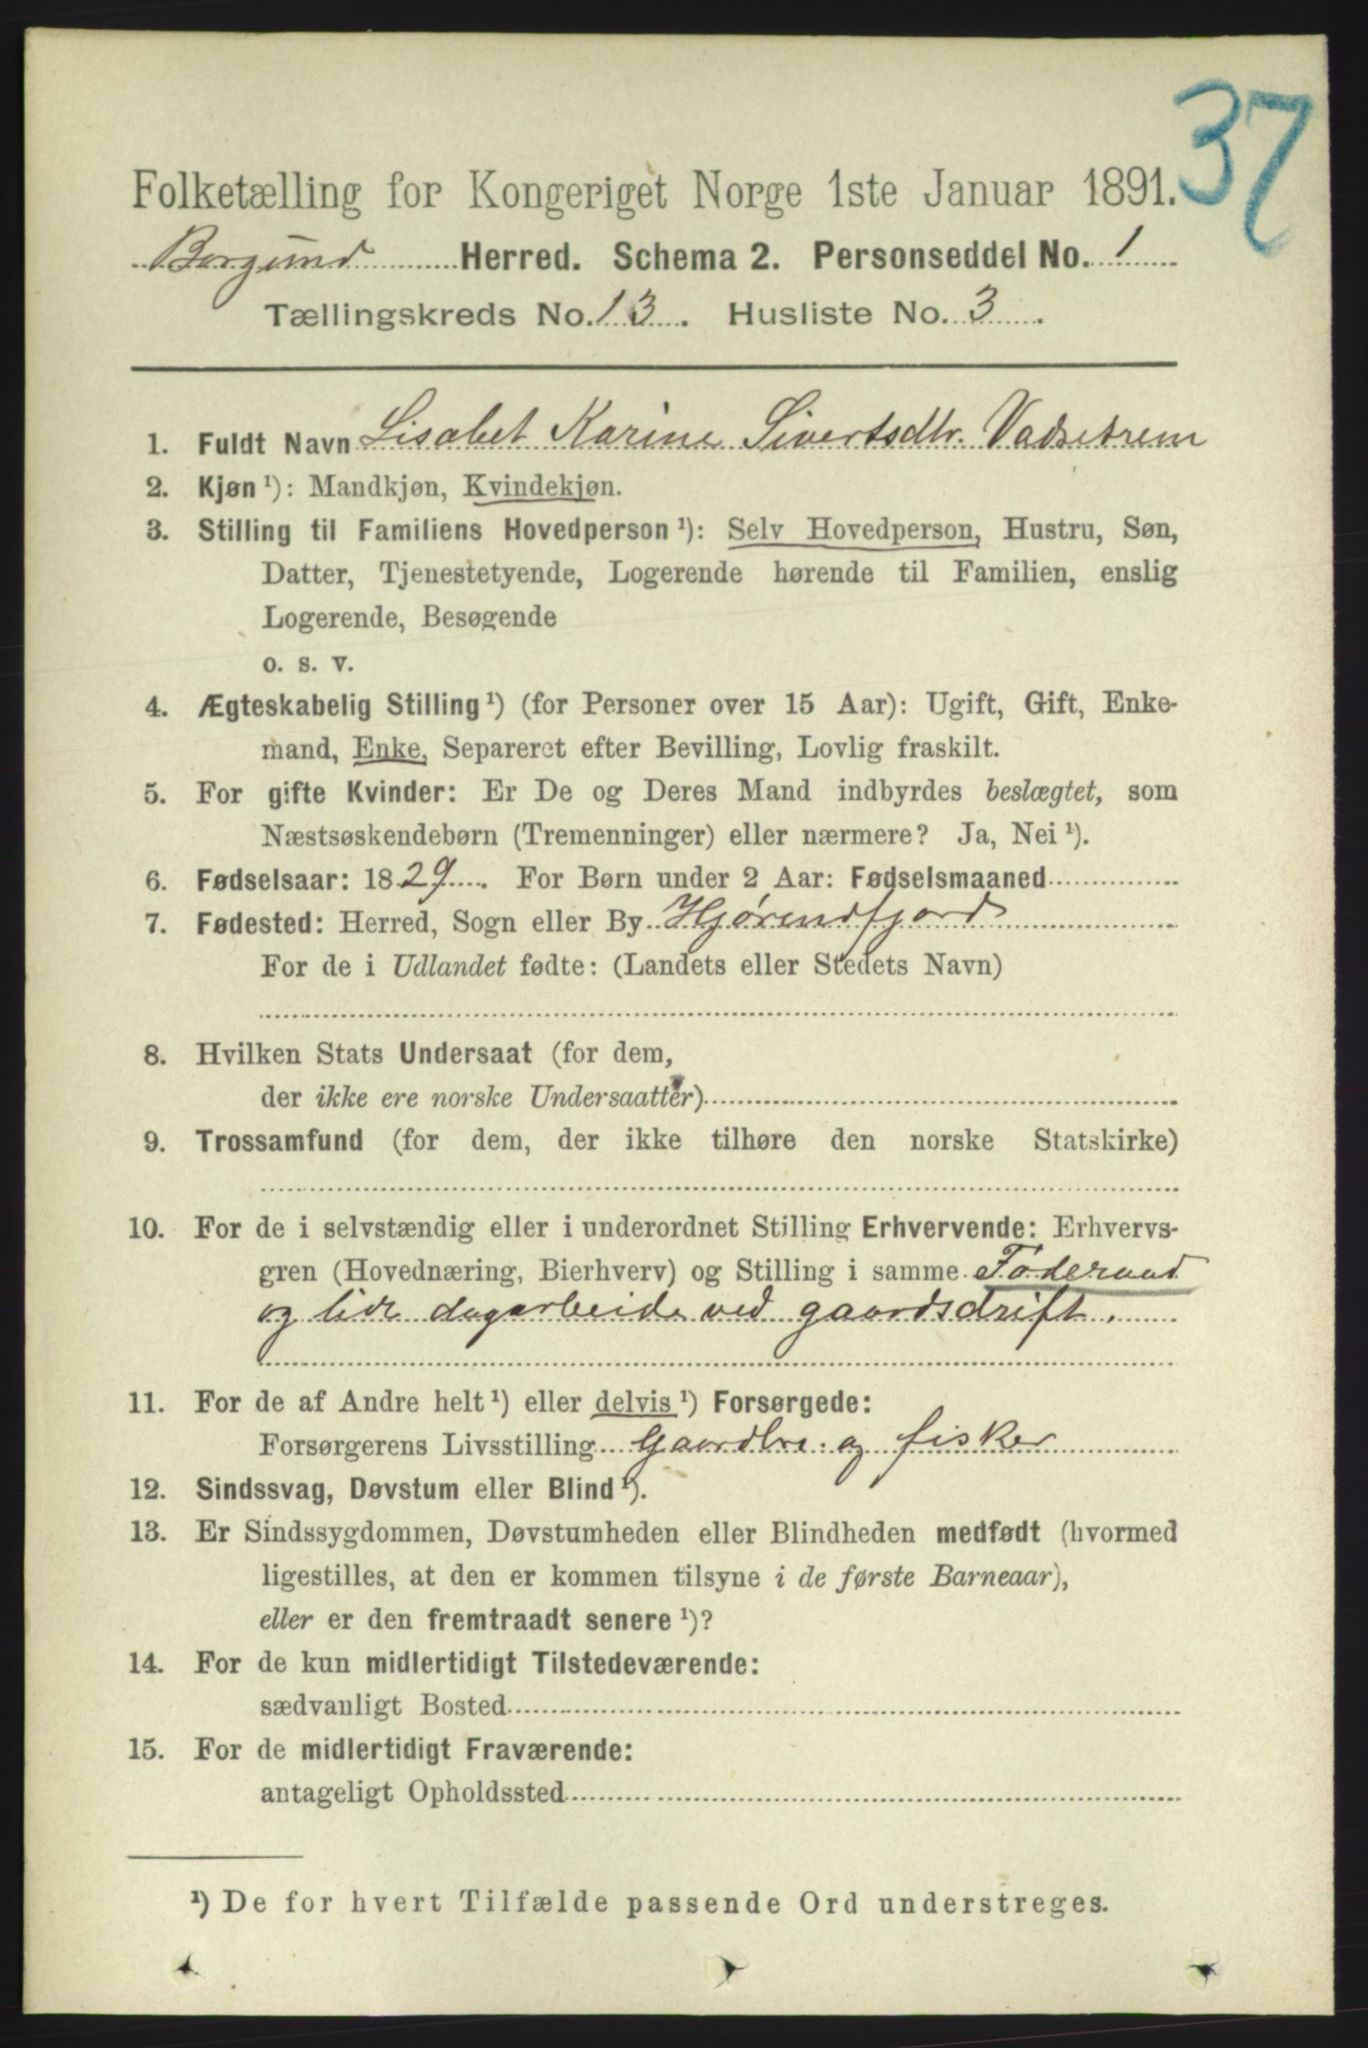 37
Folketælling for Kongeriget Norge 1ste Januar 1891.
Borgund Herred. Schema 2. Personseddel No. 1
Tællingskreds No. 13. Husliste No. 3.
1. Fuldt Navn Lisabet Karine Sivertsdtr. Vadsetrem
2. Kjøn ¹): Mandkjøn, Kvindekjøn.
3. Stilling til Familiens Hovedperson ¹): Selv Hovedperson, Hustru, Søn,
Datter, Tjenestetyende, Logerende hørende til Familien, enslig
Logerende, Besøgende
o. s. v.
4. Ægteskabelig Stilling ¹) (for Personer over 15 Aar): Ugift, Gift, Enke-
mand, Enke, Separeret efter Bevilling, Lovlig fraskilt.
5. For gifte Kvinder: Er De og Deres Mand indbyrdes beslægtet, som
Næstsøskendebørn (Tremenninger) eller nærmere? Ja, Nei ¹).
6. Fødselsaar: 1829. For Børn under 2 Aar: Fødselsmaaned
7. Fødested: Herred, Sogn eller By Hjørendfjord
For de i Udlandet fødte: (Landets eller Stedets Navn)
8. Hvilken Stats Undersaat (for dem,
der ikke ere norske Undersaatter)
9. Trossamfund (for dem, der ikke tilhøre den norske Statskirke)
10. For de i selvstændig eller i underordnet Stilling Erhvervende: Erhvervs-
gren (Hovednæring, Bierhverv) og Stilling i samme Føderaad
og lidt dagarbeide ved gaardsdrift.
11. For de af Andre helt ¹) eller delvis ¹) Forsørgede:
Forsørgerens Livsstilling Gaardbr. og fisker
12. Sindssvag, Døvstum eller Blind ¹).
13. Er Sindssygdommen, Døvstumheden eller Blindheden medfødt (hvormed
ligestilles, at den er kommen tilsyne i de første Barneaar),
eller er den fremtraadt senere ¹)?
14. For de kun midlertidigt Tilstedeværende:
sædvanligt Bosted
15. For de midlertidigt Fraværende:
antageligt Opholdssted
¹) De for hvert Tilfælde passende Ord understreges.